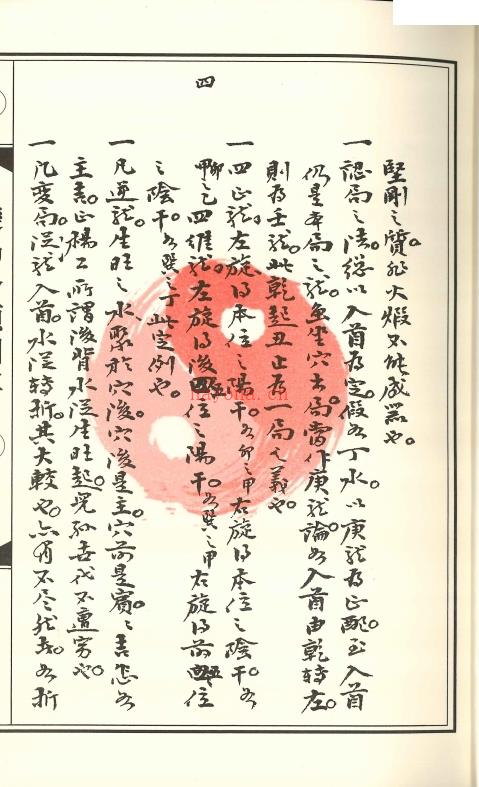 四
堅剛之質。非火煅不能成器也。
一認局之法。總以入首為定。假如丁水。以庚龍為正配。至入首
仍是本局之龍。無坐穴出局。當作庚龍論。如入首由乾轉左。
則為壬龍。此乾起丑止為一局之義也。
一四正龍。左旋得本位之陽干。如卯之甲右旋得本位之陰干。如
卯之乙四維龍。左旋得後四位之陽干。如巽之甲右旋得前四位
之陰干。如巽之丁此定例也。
一凡逆龍。生旺之水聚於穴後。穴後是主。穴前是賓。賓善怎如
主善。正楊公所謂後背水從生旺起。兒孫世代不遭窮也。
一凡變局。從龍入首。水從轉折。其大較也。亦有不尽然者。如折